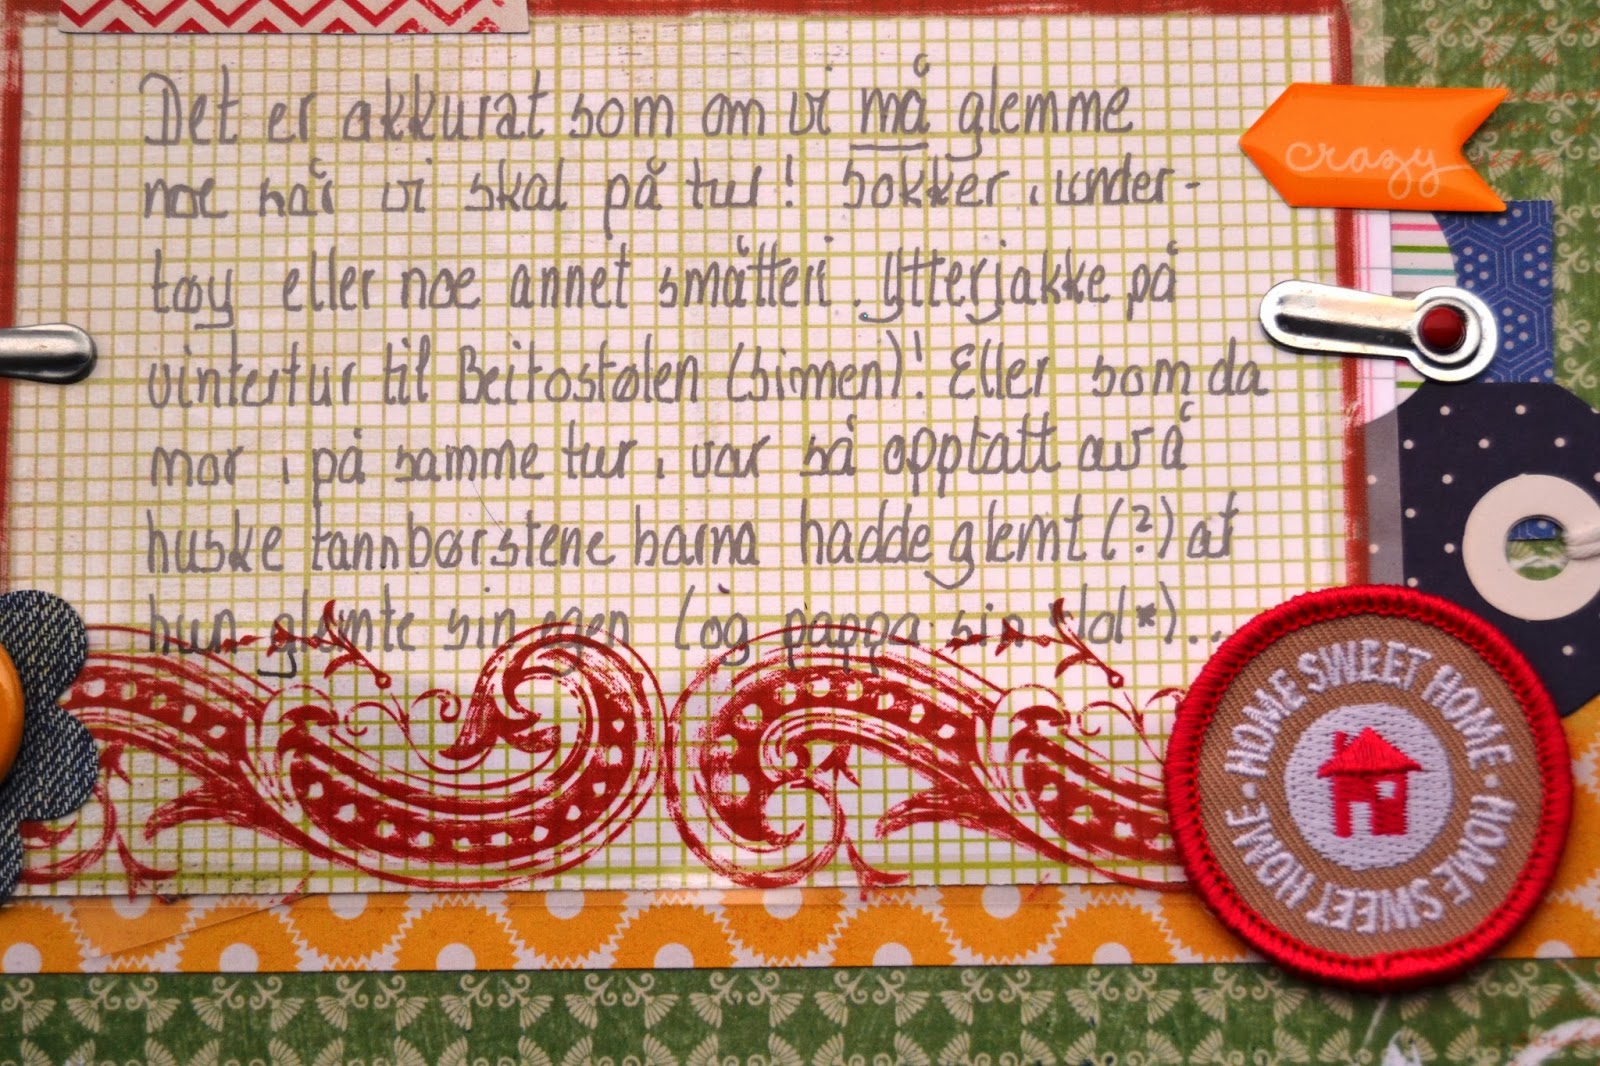 Det er akkurat som om vi må glemme
noe når vi skal på tur! Sokker, under-
tøy eller noe annet småtteri. Ytterjakke på
vintertur til Beitostølen (Simen)! Eller som da
mor, på samme tur, var så opptatt av å
huske tannbørstene barna hadde glemt (?) at
hun glemte sin egen (og pappa sin
crazy
· HOME SWEET HOME · HOME SWEET HOME